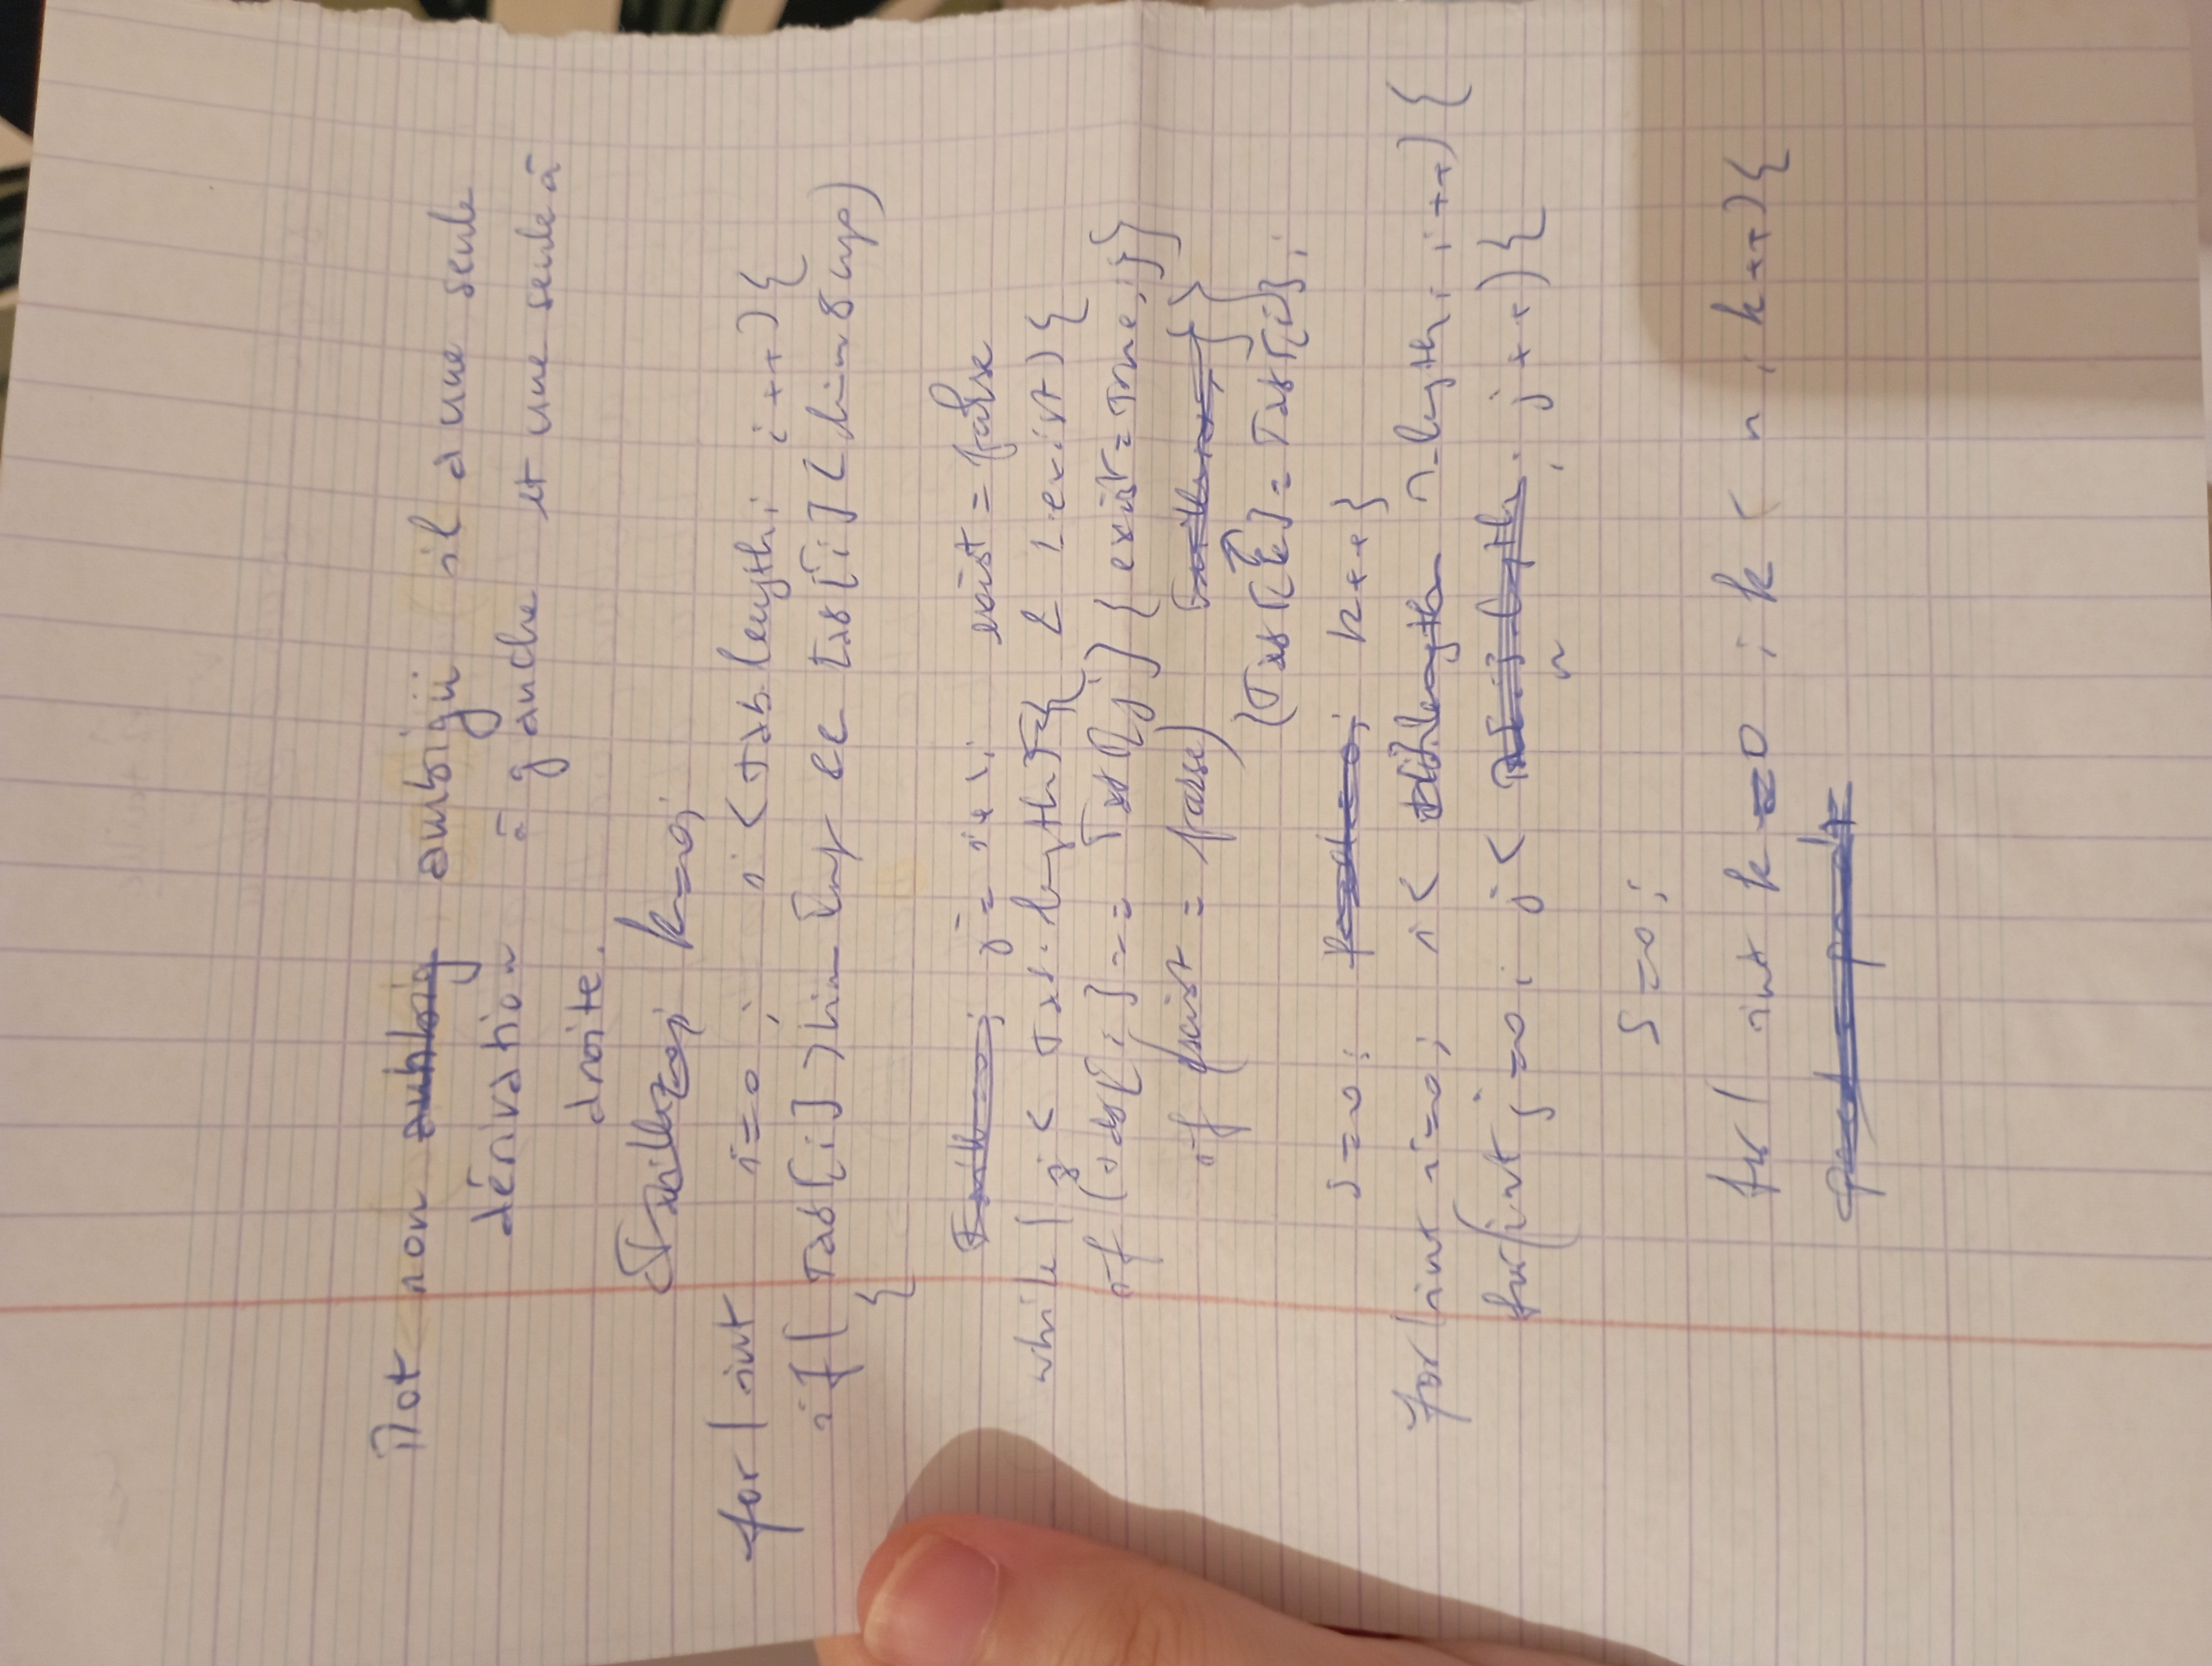 Mot non ambig ambigü il a une seule
dérivation à gauche et une seule à
droite.
Taille=0; k=0;
for( int i=0 ; i < tab.length; i++){
if( Tab[i] > lim Inf && tab[i] < lim Sup)
{
Taille=0; j = i+1; exist = false
while( j < Tab.length){ & !exist){
if (tab[i] == Tab[j] { exist = true; }}
if (exist = false) }}
{Tab[k] = Tab[i];
s=0; prod=0; k++}
for(int i=0; i< n.length; i++){
for(int j=0; j< n ; j++){
s=0;
for( int k=0 ; k < n ; k++){